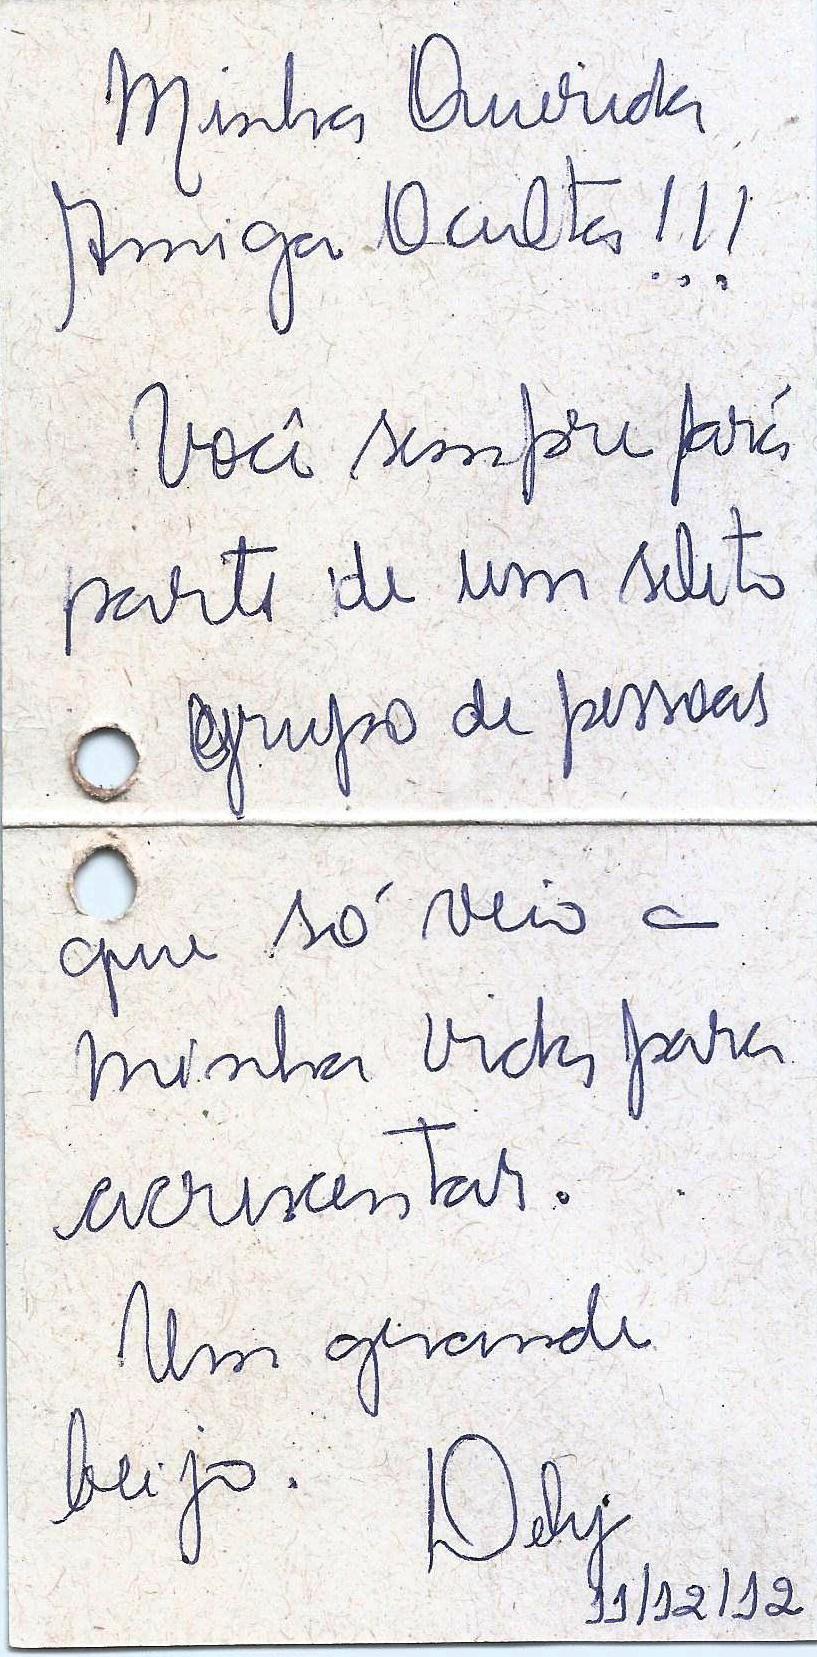 Minha Querida
Amiga Oculta!!!
Você sempre fará
parte de um seleto
grupo de pessoas
que só veio a
minha vida para
acrescentar.
Um grande
beijo. Dely
11/12/12